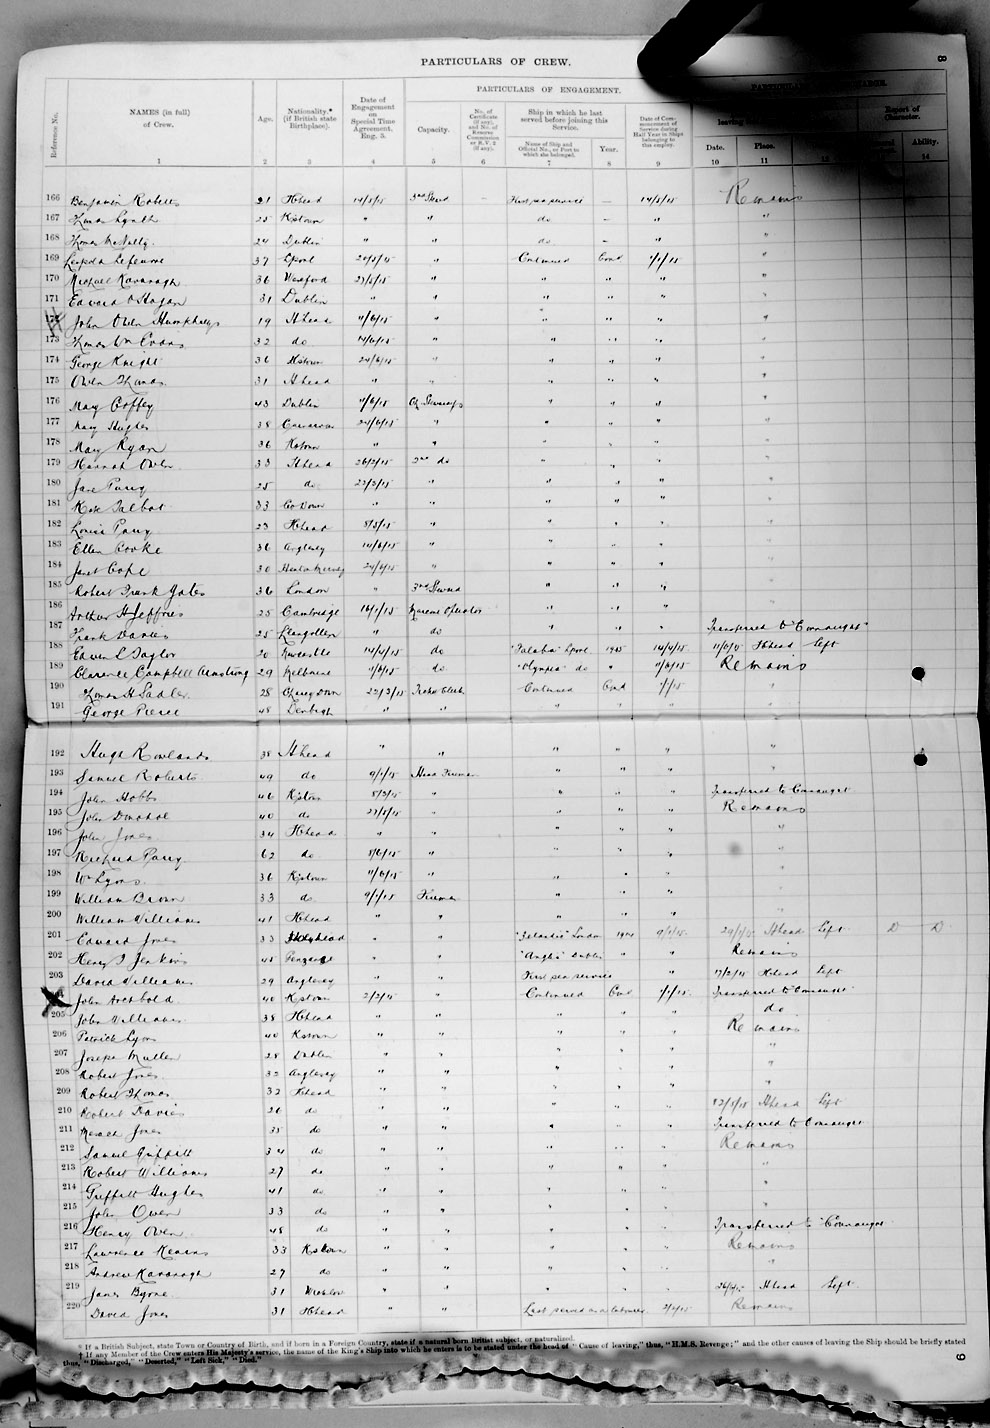 8
PARTICULARS OF CREW.
PARTICULARS OF ENGAGEMENT.
Reference No.
NAMES (in full) of Crew.
Age.
Nationality.* (if British state Birthplace).
Date of Engagement on Special Time Agreement, Eng. 3.
Capacity.
No. of Certificate (if any), and No. of Reserve Commission or R.V. 2 (if any).
Ship in which he last served before joining this Service.
Name of Ship and Official No., or Port to which she belonged.
Year.
Date of Commencement of Service during Half Year in Ships belonging to this employ.
Date.
Place.
Report of Character.
Ability.
1 2 3 4 5 6 7 8 9 10 11 14
166 Benjamin Roberts 21 Hhead 14/5/15 3rd Stewd – First sea service – 14/5/15 Remains
167 Lynch 25 Kstown " " do – " "
168 Thomas McNally 24 Dublin " " do – " "
169 Lefeuvre 37 Lpool " Continued Cond 1/1/15 "
170 Michael Kavanagh 36 Wexford " " " " "
171 Edward O'Hagan 31 Dublin " " " " " "
172 John Owen Humphreys 19 Hhead 11/6/15 " " " " "
173 Thomas Wm Evans 32 do 14/6/15 " " " " "
174 George Knight 36 Kstown 24/6/15 " " " " "
175 Owen Thomas 31 Hhead " " " " " "
176 May Coffey 43 Dublin 11/6/15 " " " "
177 Mary Hughes 38 Carnarvon 24/6/15 " " " " "
178 May Ryan 36 Kstown " " " " " "
179 Hannah Owen 33 Hhead 26/2/15 2nd do " " " "
180 Jane Parry 25 do 22/3/15 " " " " "
181 Kate Talbot 33 Co Down " " " " " "
182 Louisa Parry 23 Hhead 8/5/15 " " " " "
183 Ellen Cooke 36 Anglesey 14/6/15 " " " " "
184 Janet Cope 30 24/6/15 " " " " "
185 Robert Frank Yates 36 London " 3rd Steward " " " "
186 Arthur H Jeffries 25 Cambridge 16/1/15 Marconi Operator " " " "
187 Frank Davies 25 Llangollen " do " " " Transferred to "Connaught"
188 Edwin L Taylor 20 Newcastle 14/4/15 do Lpool 1915 14/4/15 Hhead Left
189 Clarence Campbell Armstrong 29 Melbourne 11/6/15 do "Olympic" do " 11/6/15 Remains
190 Thomas H Sadler 28 22/3/15 Clerk Continued Cond 1/1/15 "
191 George Pierce 48 Denbigh " " " " " "
192 Hugh Rowlands 38 Hhead " " " " " "
193 Samuel Roberts 49 do 9/1/15 Head Fireman " " " "
194 John Hobbs 46 Kstown 8/3/15 " " " " Transferred to Connaught
195 John Donohoe 40 do 27/5/15 " " " " Remains
196 John Jones 34 Hhead " " " " " "
197 Richard Parry 62 do 8/6/15 " " " " "
198 Wm Lyons 36 Kstown 11/6/15 " " " " "
199 William Brown 33 do 9/1/15 Fireman " " " "
200 William Williams 41 Hhead " " " " " "
201 Edward Jones 33 Holyhead " " London 1914 9/1/15 29/1/15 Hhead Left D D
202 Henry J Jenkins 45 Penzance " " "Anglia" Dublin " " Remains
203 David Williams 29 Anglesey " " First sea service " 17/2/15 Hhead Left
204 John Archbold 40 Kstown 2/2/15 " Continued Cond 1/1/15 Transferred to Connaught
205 John Williams 38 Hhead " " " " " do
206 Patrick Lyons 40 Kstown " " " " " Remains
207 Joseph Mullen 28 Dublin " " " " " "
208 Robert Jones 32 Anglesey " " " " " "
209 Robert Thomas 32 Hhead " " " " " "
210 Robert Davies 26 do " " " " " 12/5/15 Hhead Left
211 Jones 35 do " " " " " Transferred to Connaught
212 Samuel Griffith 34 do " " " " " Remains
213 Robert Williams 27 do " " " " " "
214 Griffith Hughes 41 do " " " " " "
215 John Owen 33 do " " " " " "
216 Henry Owen 48 do " " " " " Transferred to "Connaught"
217 Lawrence Kearns 33 Kstown " " " " " Remains
218 Andrew Kavanagh 27 do " " " " " "
219 James Byrne 31 Wicklow " " " " " Hhead Left
220 David Jones 31 Hhead " " Last served as a labourer 2/2/15 Remains
* If a British Subject, state Town or Country of Birth, and if born in a Foreign Country, state if a natural born British subject, or naturalized.
† If any Member of the Crew enters His Majesty's service, the name of the King's Ship into which he enters is to be stated under the head of "Cause of leaving," thus, "H.M.S. Revenge;" and the other causes of leaving the Ship should be briefly stated
thus, "Discharged," "Deserted," "Left Sick," "Died."
9